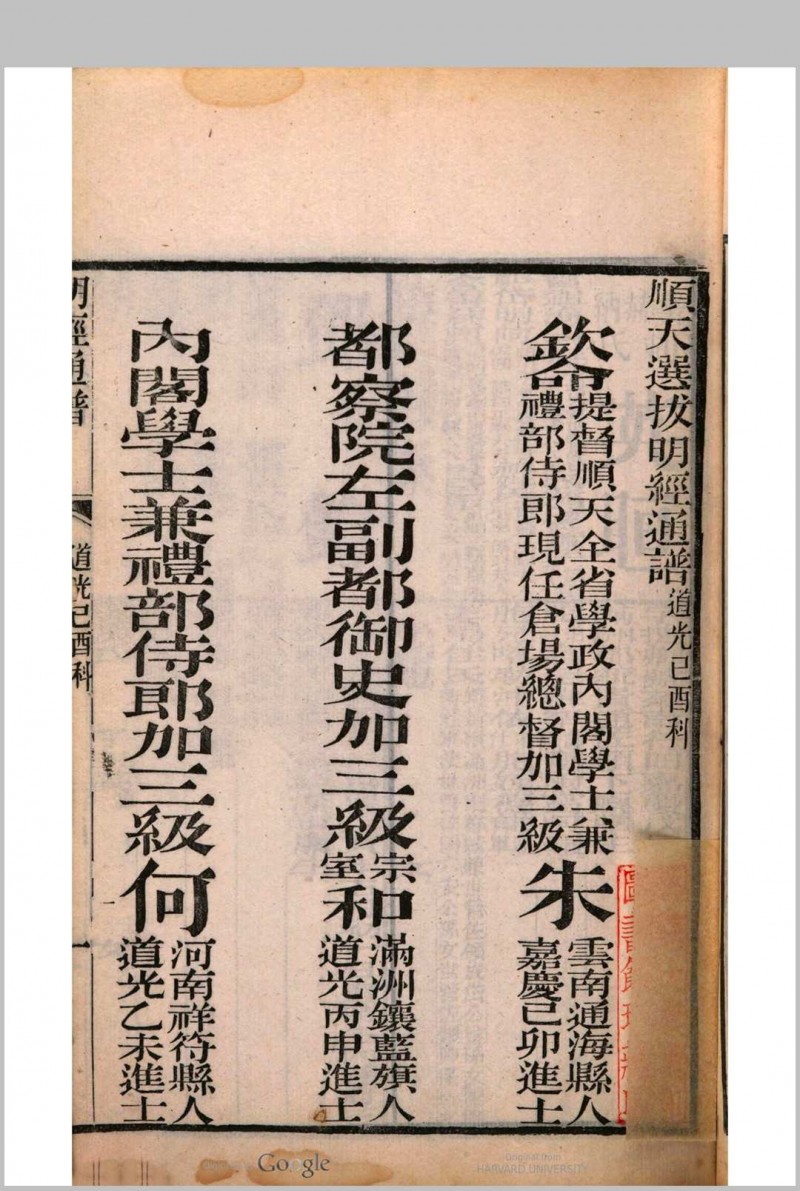 順天選拔明經通譜 道光己酉科
欽命提督順天全省學政內閣學士兼
禮部侍郎現任倉場總督加三級朱 雲南通海縣人
嘉慶己卯進士
都察院左副都御史加三級宗室和 滿洲鑲藍旗人
道光丙申進士
內閣學士兼禮部侍郎加三級何 河南祥符縣人
道光乙未進士
明經通譜 道光己酉科 一
Google
Original from
HARVARD UNIVERSITY